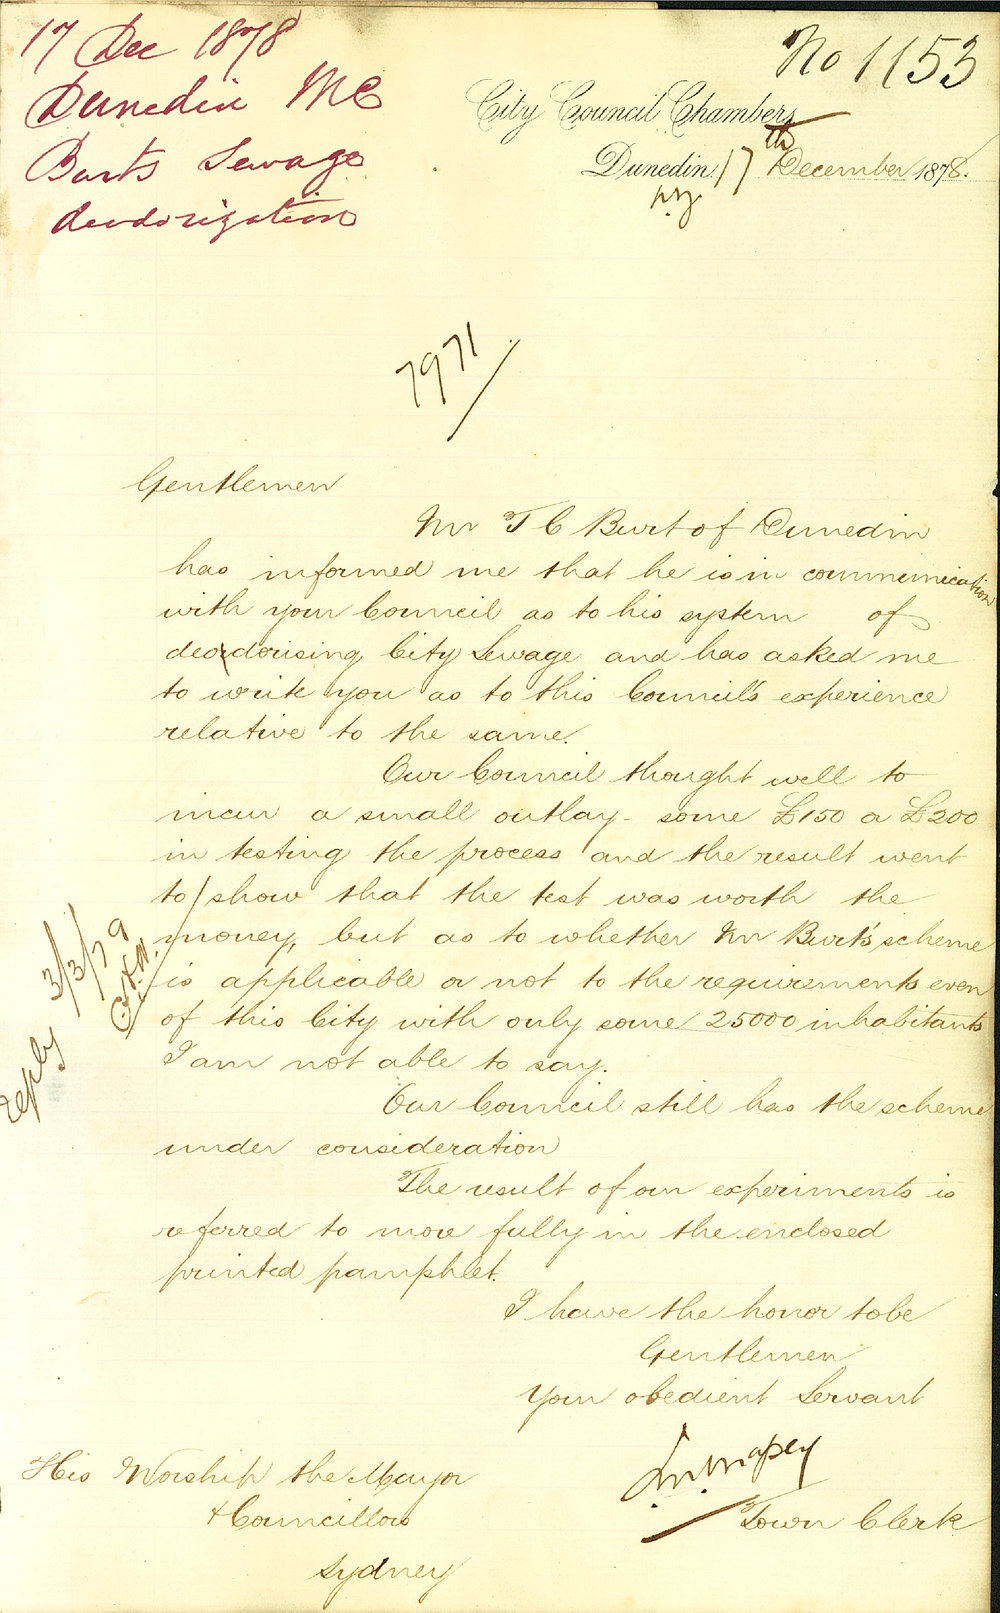 17 Dec 1878
Dunedin MC
Burts Sewage
deodorization
No 1153
City Council Chambers
Dunedin 17th December 1878.
N.Z.
7971
Gentlemen
Mr T C Burt of Dunedin
has informed me that he is in communication
with your Council as to his system of
deodorising City Sewage and has asked me
to write you as to this Council's experience
relative to the same.
Our Council thought well to
incur a small outlay - some £150 a £200
in testing the process and the result went
to show that the test was worth the
money, but as to whether Mr Burt's scheme
is applicable or not to the requirements even
of this City with only some 25000 inhabitants
I am not able to say.
Our Council still has the scheme
under consideration
The result of our experiments is
referred to more fully in the enclosed
printed pamphlet.
I have the honor to be
Gentlemen
Your obedient Servant
Town Clerk
His Worship the Mayor
& Councillors
Sydney
reply 3/3/79